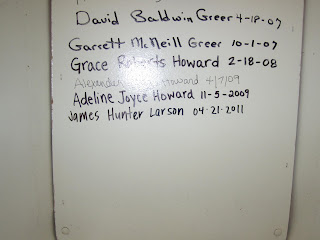 David Baldwin Greer 4-18-07
Garrett McNeill Greer 10-1-07
Grace Roberts Howard 2-18-08
Alexander Howard 4/7/09
Adeline Joyce Howard 11-5-2009
James Hunter Larson 04.21.2011